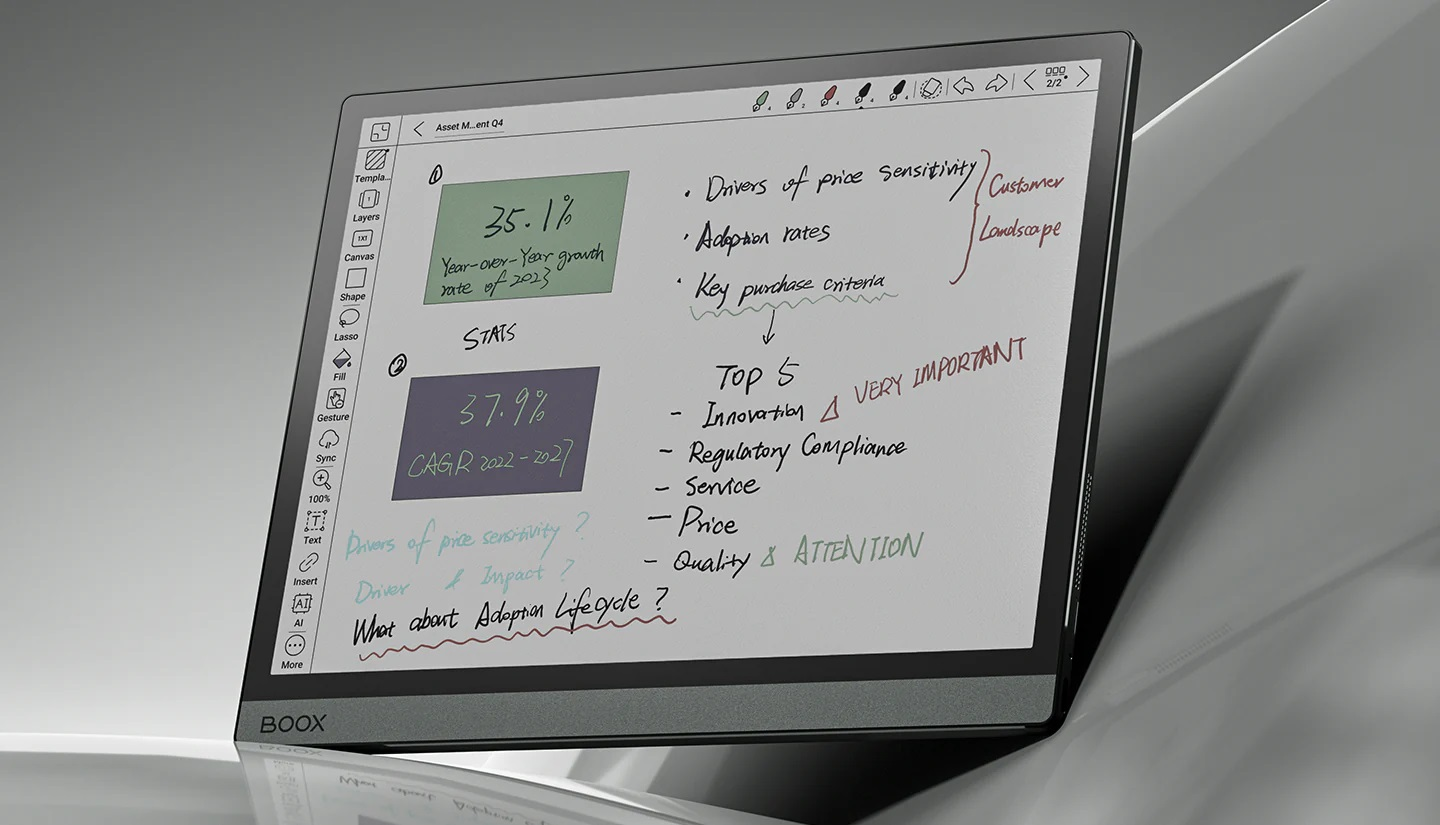 Asset M...ent Q4
4
2
4
4
4
2/2
Templa...
1
Layers
1X1
Canvas
Shape
Lasso
Fill
Gesture
Sync
100%
T
Text
Insert
AI
AI
More
1
35.1%
Year-over-Year growth
rate of 2023
STATS
2
37.9%
CAGR 2022-2027
Drivers of price sensitivity ?
Driver & Impact ?
What about Adoption Lifecycle ?
• Drivers of price sensitivity
• Adoption rates
• Key purchase criteria
Customer
Landscape
Top 5
- Innovation VERY IMPORTANT
- Regulatory Compliance
- Service
- Price
- Quality & ATTENTION
BOOX
BOOX